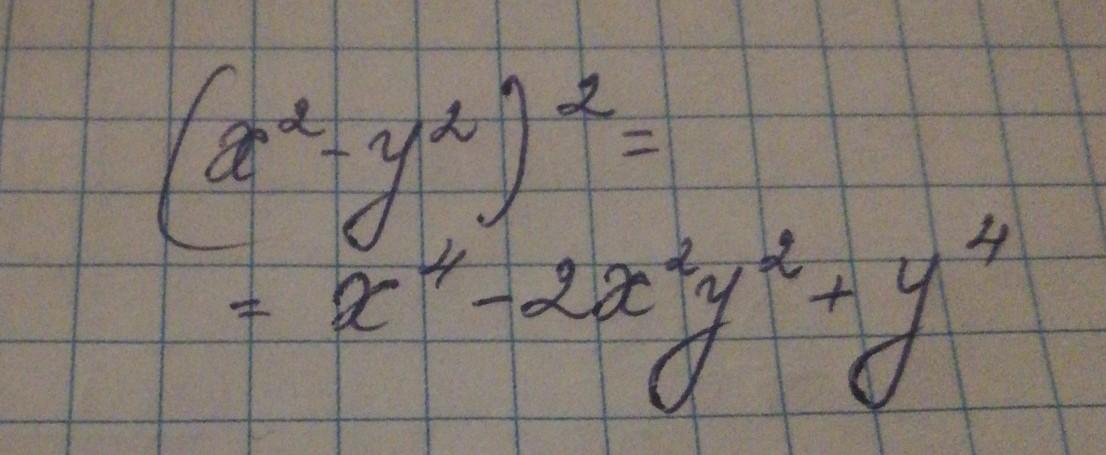 (x² - y²)² =
= x⁴ - 2x²y² + y⁴